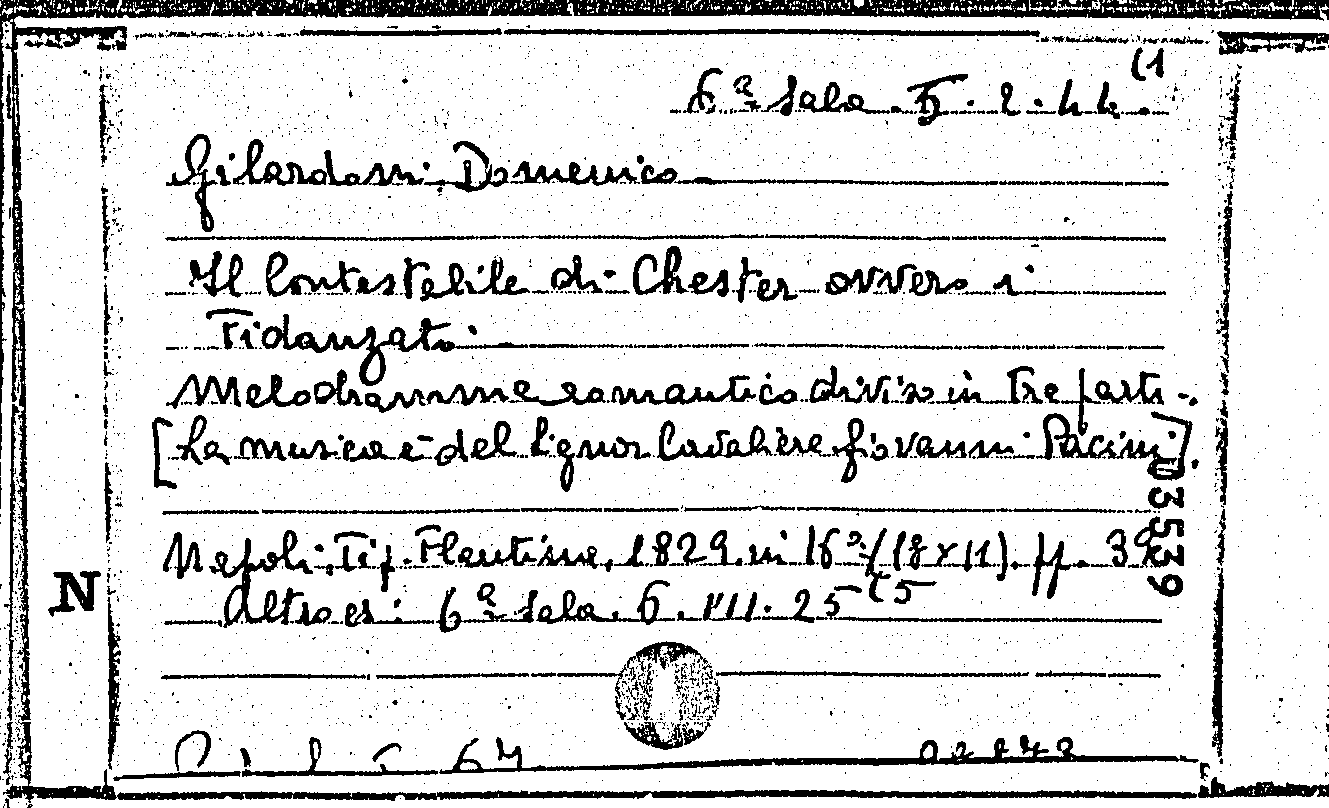 6ª Sala. 5. 2. 44. (1
Gilardoni, Domenico -
Il Contestabile di Chester ovvero i
Fidanzati.
Melodramma romantico diviso in tre parti -.
[La musica è del Signor Cavaliere Giovanni Pacini].
Napoli, Tip. Flautina, 1829. in 16º/(18x11). pp. 39
Altro es: 6ª Sala. 6. VII. 25 (5
03539
N